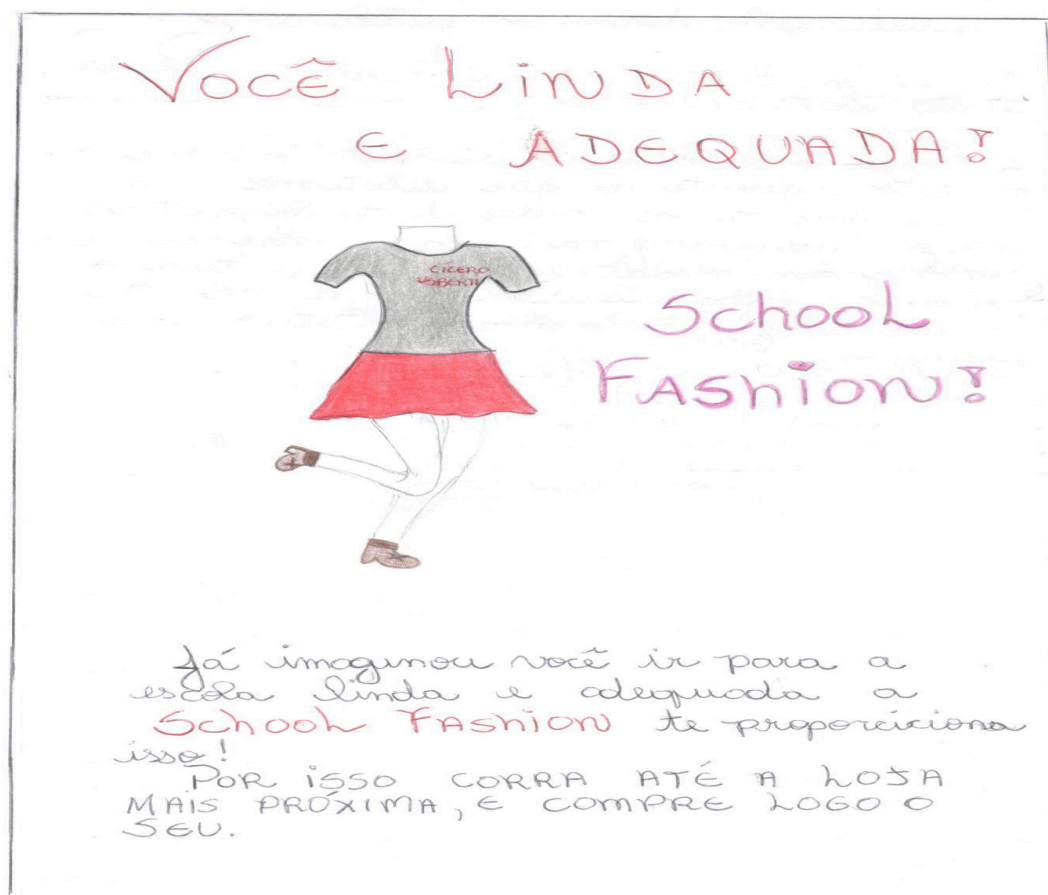 VOCÊ LINDA
E ADEQUADA!
CÍCERO
SCHOOL
FASHION!
Já imaginou você ir para a
escola linda e adequada a
SCHOOL FASHION te proporciciona
isso!
POR ISSO CORRA ATÉ A LOJA
MAIS PRÓXIMA, E COMPRE LOGO O
SEU.